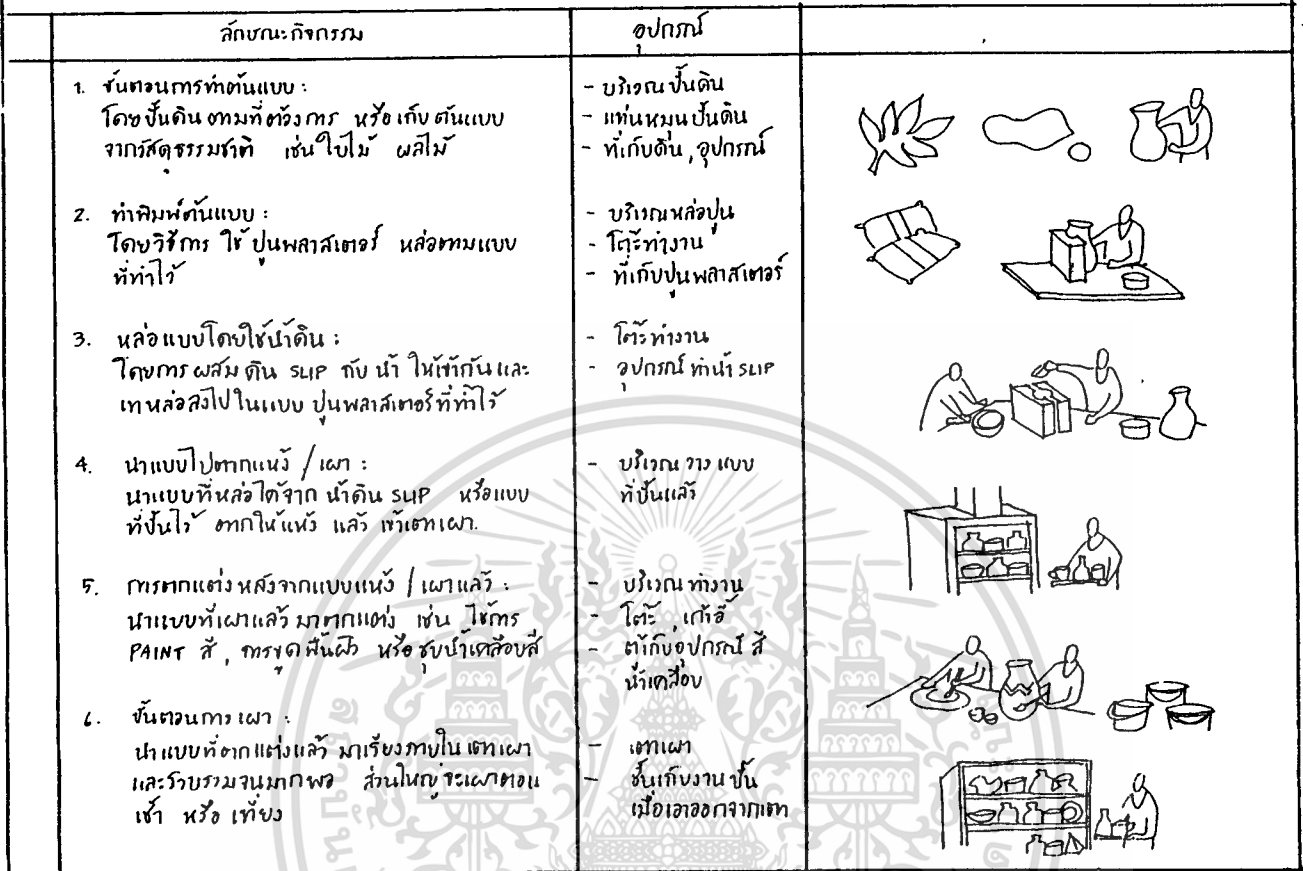 ลักษณะกิจกรรม
อุปกรณ์
1. ขั้นตอนการทำต้นแบบ :
โดยปั้นดิน ตามที่ต้องการ หรือ เก็บ ต้นแบบ
จากวัสดุธรรมชาติ เช่น ใบไม้ ผลไม้
- บริเวณ ปั้นดิน
- แท่นหมุน ปั้นดิน
- ที่เก็บดิน , อุปกรณ์
2. ทำพิมพ์ต้นแบบ :
โดยวิธีการ ใช้ ปูนพลาสเตอร์ หล่อตามแบบ
ที่ทำไว้
- บริเวณหล่อปูน
- โต๊ะทำงาน
- ที่เก็บปูนพลาสเตอร์
3. หล่อแบบโดยใช้น้ำดิน :
โดยการ ผสม ดิน SLIP กับ น้ำ ให้เข้ากัน และ
เทหล่อลงไปในแบบ ปูนพลาสเตอร์ที่ทำไว้
- โต๊ะทำงาน
- อุปกรณ์ ทำน้ำ SLIP
4. นำแบบไปตากแห้ง / เผา :
นำแบบที่หล่อได้จาก น้ำดิน SLIP หรือแบบ
ที่ปั้นไว้ ตากให้แห้ง แล้ว เข้าเตาเผา.
- บริเวณ วาง แบบ
ที่ปั้นแล้ว
5. การตกแต่ง หลังจากแบบแห้ง / เผาแล้ว :
นำแบบที่เผาแล้ว มาตกแต่ง เช่น ใช้การ
PAINT สี , การขูด พื้นผิว หรือ ชุบน้ำเคลือบสี
- บริเวณ ทำงาน
- โต๊ะ , เก้าอี้
- ตู้เก็บอุปกรณ์ สี
น้ำเคลือบ
6. ขั้นตอนการ เผา :
นำแบบที่ตกแต่งแล้ว มาเรียงภายใน เตาเผา
และรวบรวมจนมากพอ ส่วนใหญ่จะเผาตอน
เช้า หรือ เที่ยง
- เตาเผา
- ชั้นเก็บงาน ปั้น
เมื่อเอาออกจากเตา